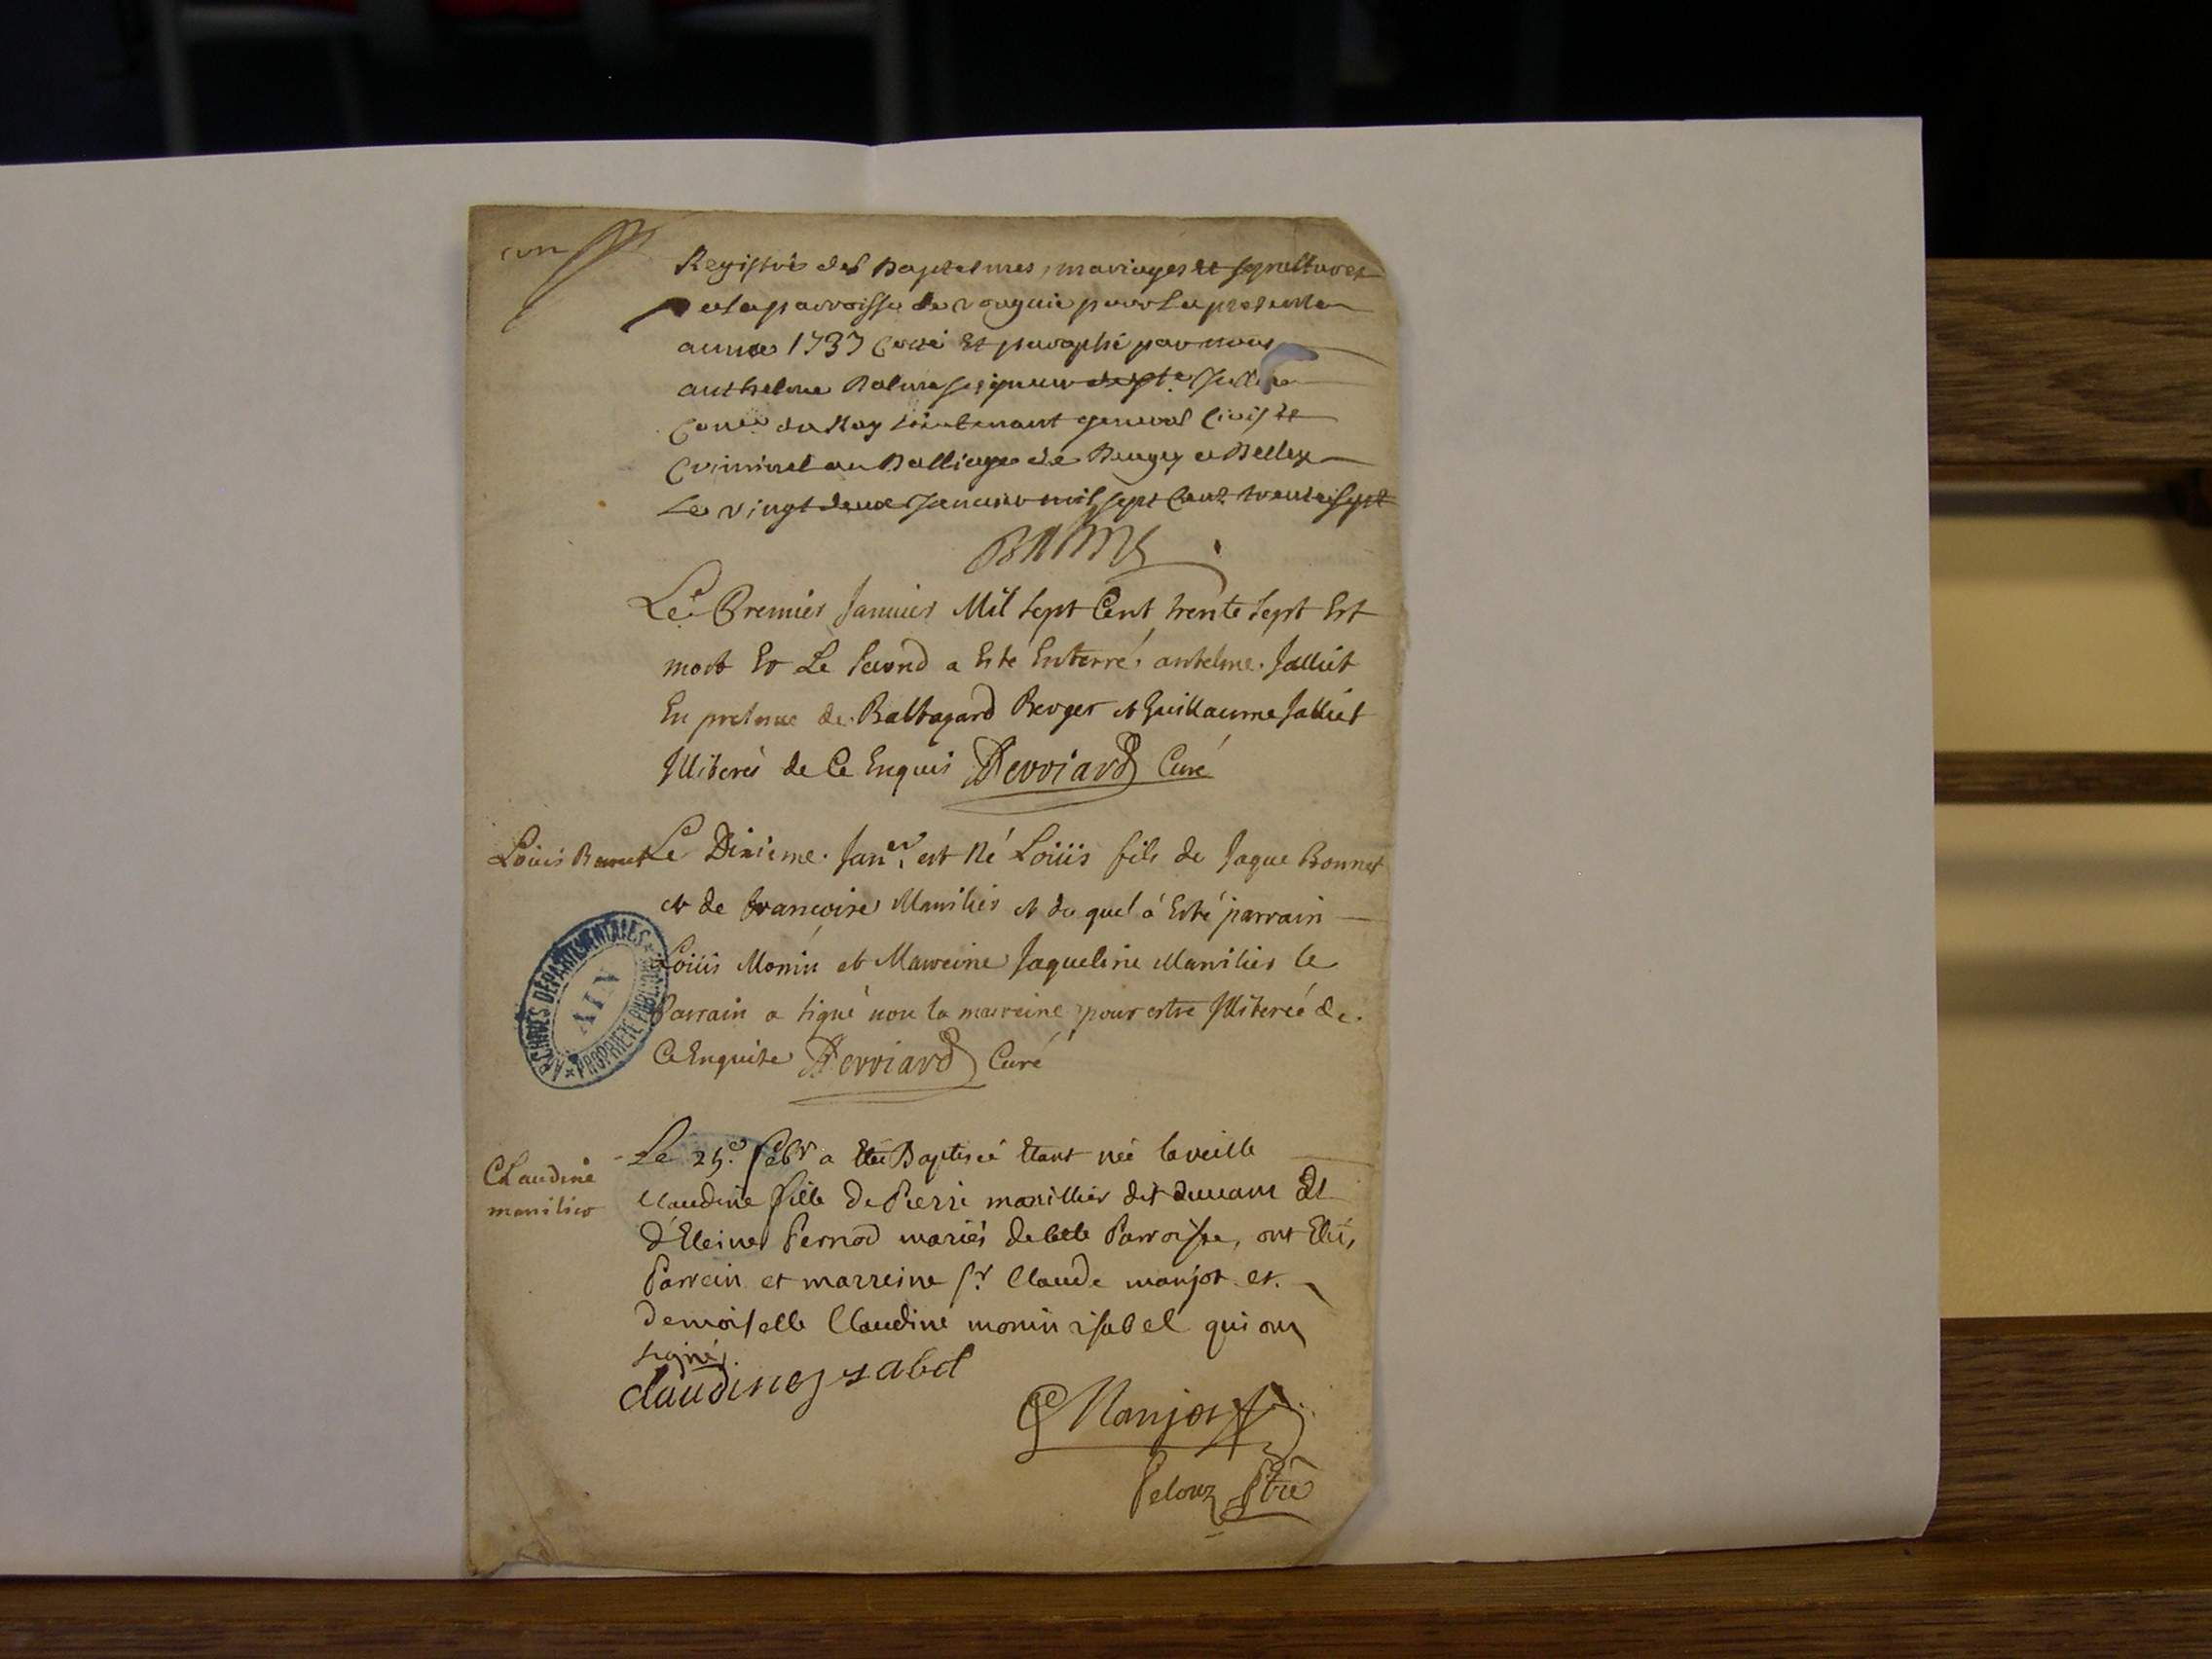 un
Registre des Baptesmes, mariages et sepultures
de la parroisse de vougnie pour La presente
année 1737 Cotté Et paraphé par nous
anthelme Balme seigneur de Ste Jullie
Coner du Roy Lieutenant general Civil Et
Criminel au Balliage de Beugey a Belley
Le vingt deux Janvier mil sept Cent trente sept
BALME
Le Premier Janvier Mil sept Cent trente sept Est
mort Et Le second a Esté Enterré antelme Jalliet
En presence de Baltazard Berger et Guillaume Jalliet
Illiterés de Ce Enquis Derriard Curé
Louis Bonnet
Le Dixieme Janer est Né Loüis fils de Jaque Bonnet
et de francoise Manilier et du quel a Esté parrain
Loüis Monin et Marreine Jaqueline Manilier le
Parrain a signé non la marreine pour estre Illiterée de
Ce Enquise Derriard Curé
ARCHIVES DÉPARTEMENTALES
AIN
PROPRIÉTÉ PUBLIQUE
Claudine
manilier
Le 25e febr a Eté Baptisée Etant née la veille
Claudine fille De Pierre manillier dit et
d'Eleine Pernod mariés de cette Parroisse, ont Eté,
Parrein et marreine sr Claude manjot et
Demoiselle Claudine monin isabel qui ont
signé.
claudine ysabel
Manjot
Pelouz Ptre